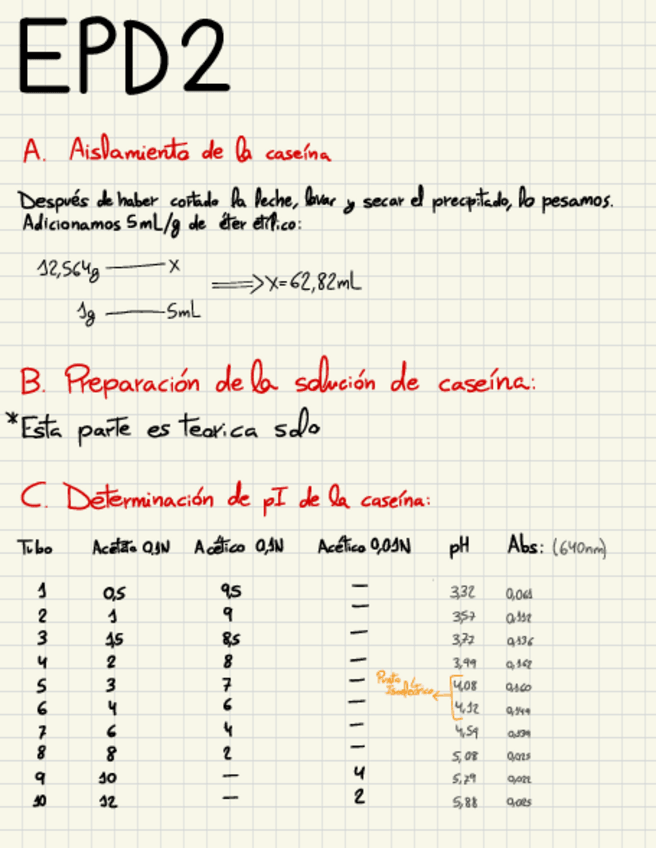 EPD2
A. Aislamiento de la caseína
Después de haber cortado la leche, lavar y secar el precipitado, lo pesamos.
Adicionamos 5mL/g de éter etílico:
12,564g — x
⟹ x=62,82mL
1g — 5mL
B. Preparación de la solución de caseína:
*Esta parte es teorica solo
C. Determinación de pI de la caseína:
Tubo Acetato 0,1N Acético 0,1N Acético 0,01N pH Abs: (640nm)
1 0,5 9,5 — 3,32
2 1 9 — 3,57
3 1,5 8,5 — 3,77 0,136
4 2 8 — 3,99 0,162
Punto
Isoeléctrico
5 3 7 — 4,08 0,160
6 4 6 — 4,32 0,144
7 6 4 — 4,59
8 8 2 — 5,08 0,025
9 10 — 4 5,79 0,022
10 12 — 2 5,88 0,025